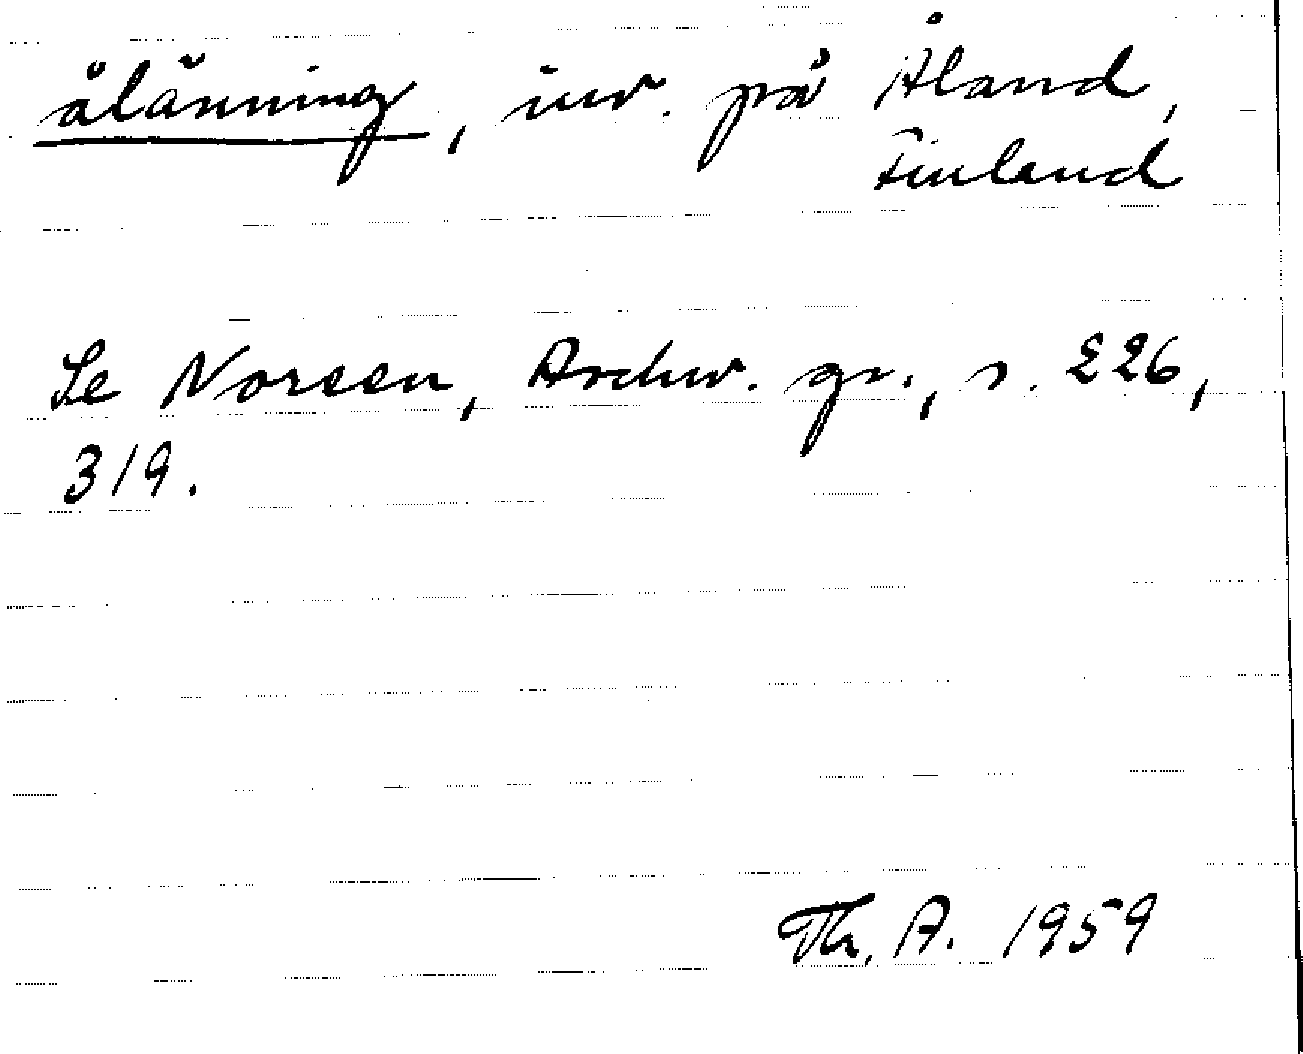 ålänning, inv. på Åland,
Finland
Se Noreen, Aschw. gr., s. 226,
319.
Th. A. 1959